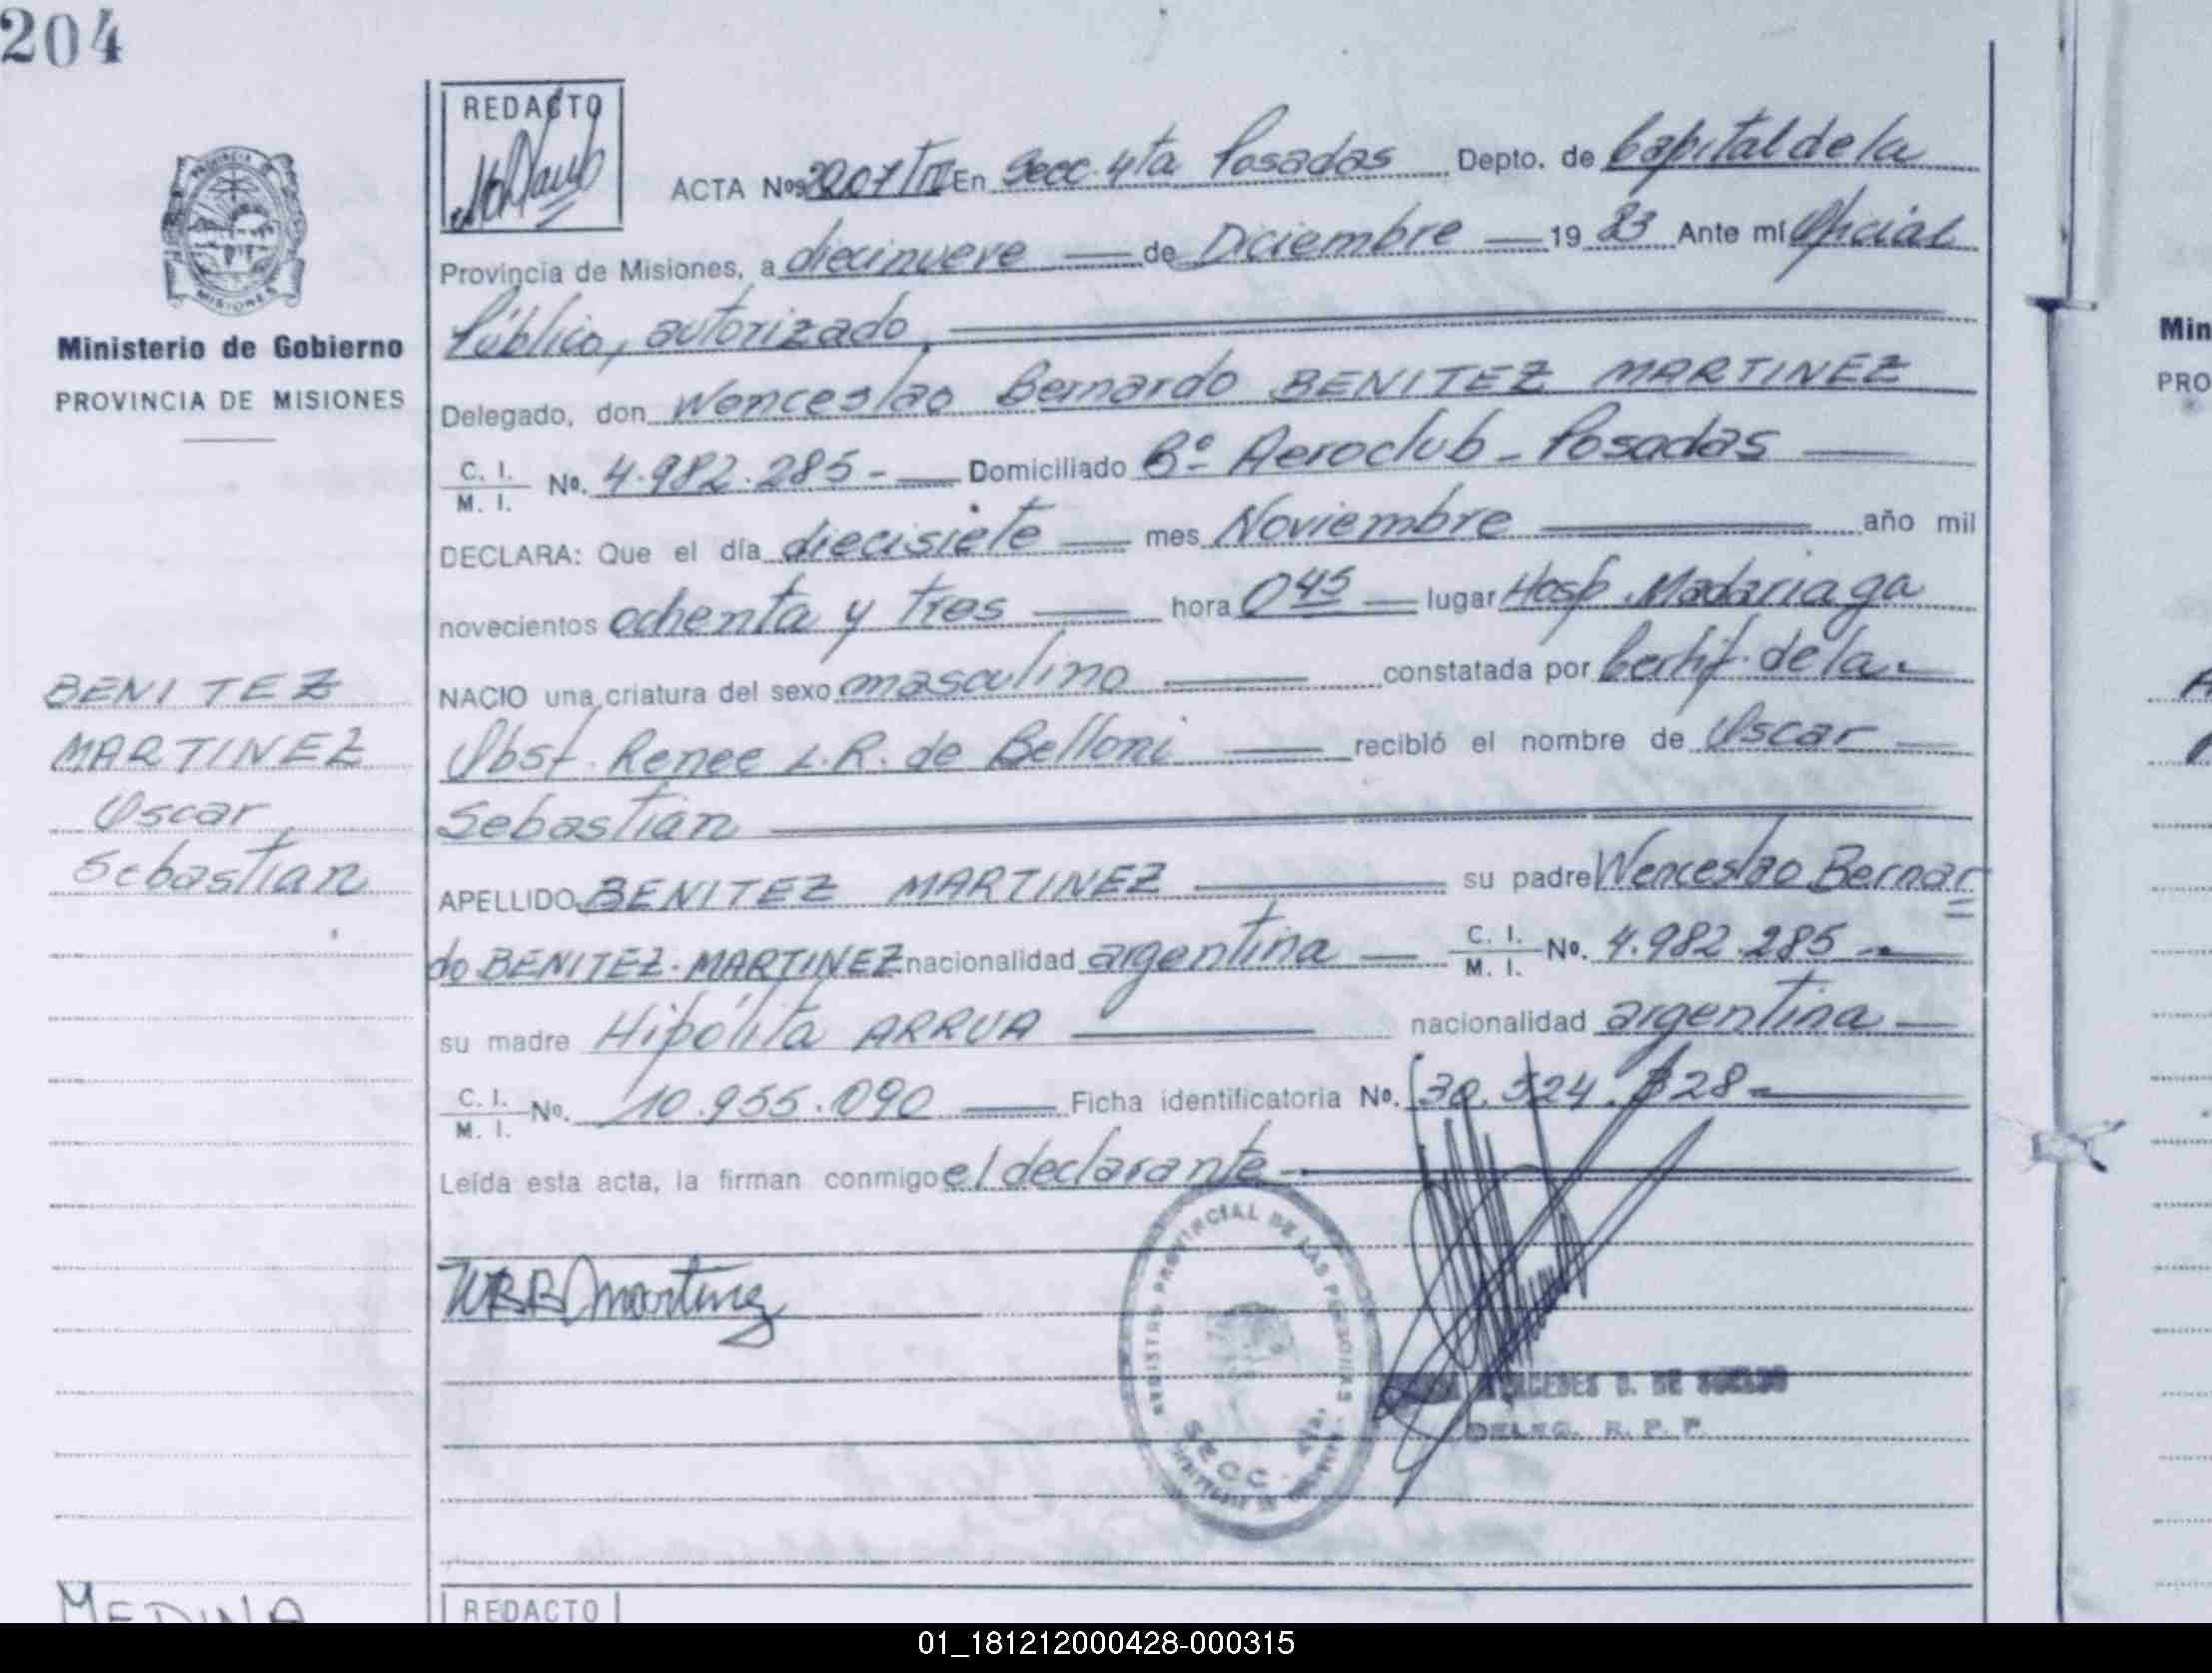 204
REDACTO
ACTA Nos 2007/TIII En Secc. 4ta Posadas Depto. de Capital de la
Provincia de Misiones, a diecinueve de Diciembre 1983 Ante mi Oficial
Público, autorizado,
Delegado, don Wenceslao Bernardo BENITEZ MARTINEZ
C. I.
M. I. Nº. 4.982.285- Domiciliado Bº Aeroclub - Posadas
DECLARA: Que el día diecisiete mes Noviembre año mil
novecientos ochenta y tres hora 0 45 lugar Hosp. Madariaga
NACIO una criatura del sexo masculino constatada por Certif. de la
Obst. Renee L.R. de Belloni recibió el nombre de Oscar
Sebastian
APELLIDO BENITEZ MARTINEZ su padre Wenceslao Bernar
do BENITEZ-MARTINEZ nacionalidad argentina C. I.
M. I. Nº. 4.982.285-
su madre Hipólita ARRUA nacionalidad argentina
C. I.
M. I. Nº. 10.955.090 Ficha identificatoria Nº. 30.524.828-
Leída esta acta, la firman conmigo el declarante
WBB Martinez
REGISTRO PROVINCIAL DE LAS PERSONAS
SECC. 4ta.
MERCEDES
DELEG. R. P. P.
PROVINCIA DE
MISIONES
Ministerio de Gobierno
PROVINCIA DE MISIONES
BENITEZ
MARTINEZ
Oscar
Sebastian
MEDINA
REDACTO
Min
PRO
01_181212000428-000315